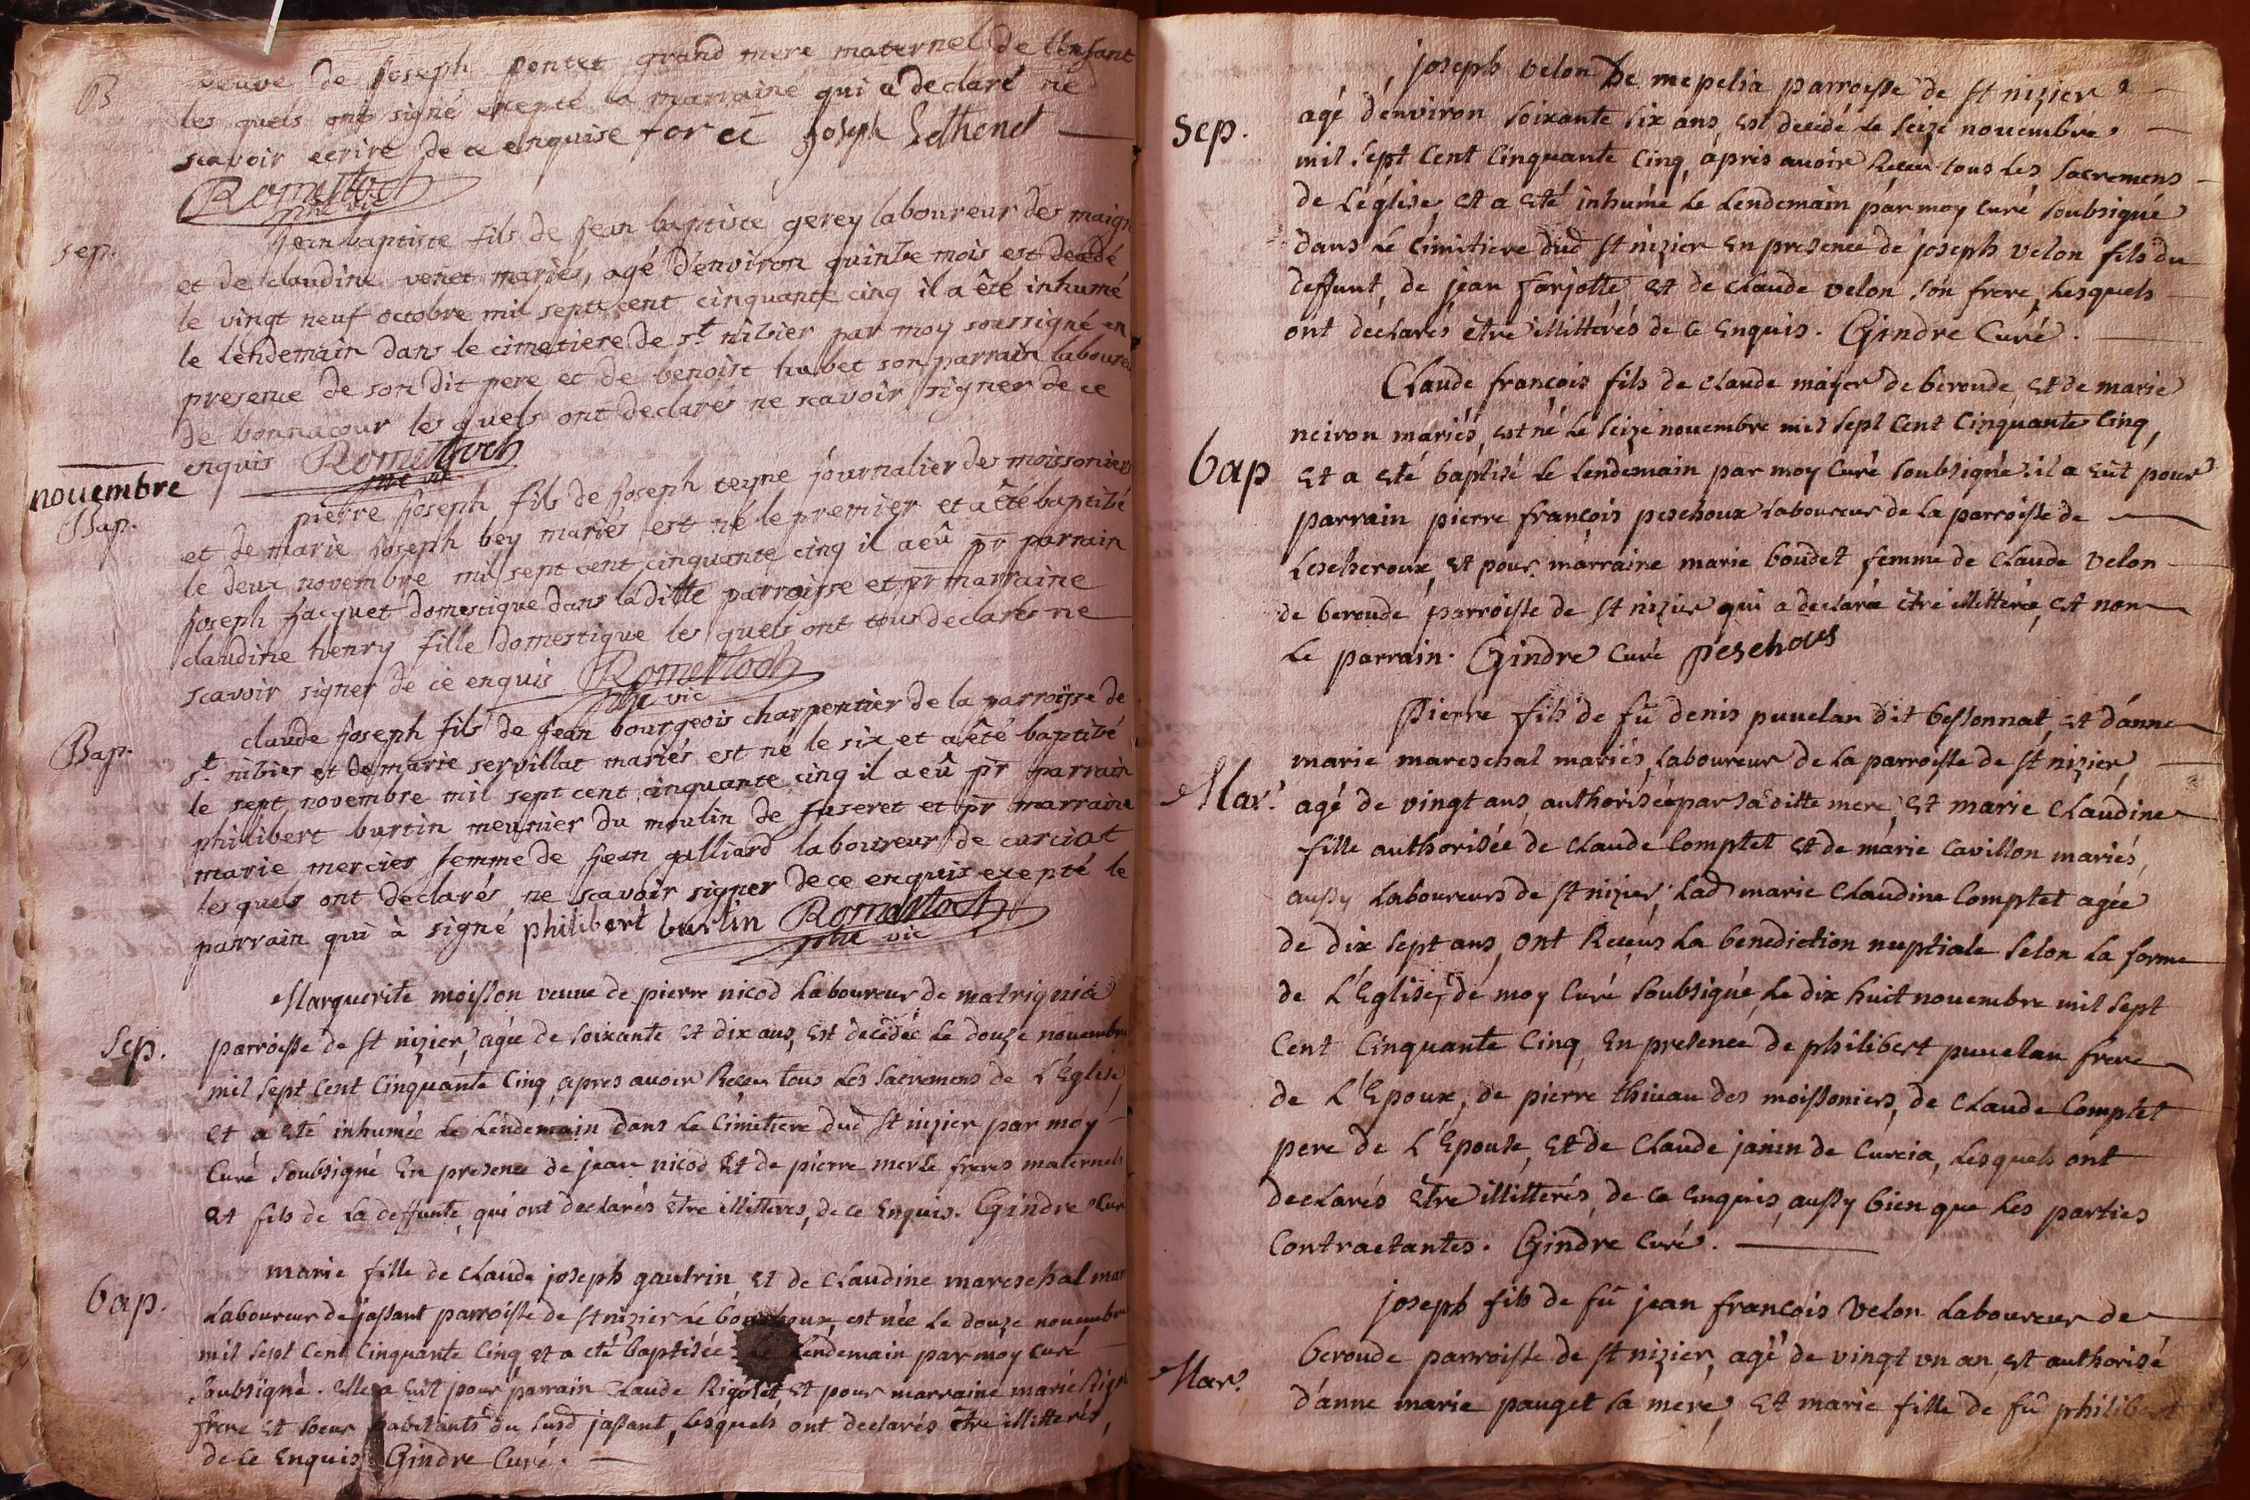 B
veuve de joseph pontet grand mere maternel de l'enfant
les quels ont signé exepté la marraine qui a declaré ne
scavoir ecrire de ce enquise foret joseph
Romettoch
ptre vic
sep.
jean baptiste fils de jean baptiste gerey laboureur des
et de claudine venet mariés, agé d'environ quinze mois est decedé
le vingt neuf octobre mil sept cent cinquante cinq il a êté inhumé
le lendemain dans le cimetiere de st nizier par moy soussigné en
presence de son dit pere et de benoist hubet son parrain
de bonnacour les quels ont declarés ne scavoir signer de ce
enquis Romettoch
ptre vic
novembre
Bap.
pierre joseph fils de joseph teyne journalier des moissoniers
et de marie joseph bey mariés est né le premier et a êté baptizé
le deux novembre mil sept cent cinquante cinq il a eû pr parrain
joseph jacquet domestique dans laditte parroisse et pr marraine
claudine henry fille domestique les quels ont tous declarés ne
scavoir signer de ce enquis Romettoch
ptre vic
Bap.
claude joseph fils de jean bourgeois charpentier de la parroisse de
st nizier et de marie servillat mariés est né le six et a êté baptizé
le sept novembre mil sept cent cinquante cinq il a eû pr parrain
philibert burtin meunier du moulin de fuseret et pr marraine
marie mercier femme de jean galliard laboureur de curciat
lesquels ont declarés ne scavoir signer de ce enquis exepté le
parrain qui à signé philibert burtin Romettoch
ptre vic
Sep.
Marguerite moisson veuve de pierre nicod Laboureur de matrignia
parroisse de st nizier, agée de soixante et dix ans, est decedée le douze novembre
mil sept cent cinquante cinq, apres avoir Receu tous les sacremens de L'Eglise,
et a eté inhumée le lendemain dans le cimitiere dud st nizier par moy
Curé soubsigné En presence de jean nicod et de pierre merle freres maternels
et fils de la deffunte, qui ont declarés etre illitterés, de ce Enquis. Gindre Curé
bap.
marie fille de claude joseph gautrin et de claudine mareschal
Laboureur de jassant parroisse de st nizier le bouchoux, est née le douze novembre
mil sept cent cinquante cinq et a eté baptisée le lendemain par moy curé
soubsigné. elle a eut pour parrain claude Rigolet, et pour marraine marie
frere et soeur habitants du susd jassant, lesquels ont declarés etre illitterés,
de ce Enquis. Gindre Curé.
Sep.
joseph velon de mepelia parroisse de st nizier
agé d'environ soixante six ans est decédé le seize novembre
mil sept cent cinquante cinq, apres avoir Receu tous les sacremens
de l'eglise, et a eté inhumé le lendemain par moy curé soubsigné
dans le cimitiere dud st nizier en presence de joseph velon fils du
deffunt, de jean farjotte, et de claude velon son frere, lesquels
ont declarés etre illitterés de ce enquis. Gindre Curé.
bap
Claude françois fils de claude mayer de beroude, et de marie
neiron mariés, est né le seize novembre mil sept cent cinquante cinq,
et a eté baptisé le lendemain par moy curé soubsigné: il a eut pour
parrain pierre françois peschoux laboureur de la parroisse de
Lescheroux, et pour marraine marie boudet femme de claude velon
de beroude parroisse de st nizier qui a declaré etre illitterée, et non
le parrain. Gindre curé peschous
Mar.
Pierre fils de fû denis puvelan dit bessonnat, et d'anne
marie mareschal mariés, laboureur de la parroisse de st nizier,
agé de vingt ans, authorisé par sa ditte mere, et marie claudine
fille authorisée de claude Complet et de marie cavillon mariés,
aussy laboureurs de st nizier; lad marie claudine Complet agée
de dix sept ans, ont Receus la benediction nuptiale selon la forme
de l'Eglise, de moy curé soubsigné, le dix huit novembre mil sept
cent cinquante cinq, en presence de philibert puvelan frere
de l'Epoux, de pierre thivau des moissoniers, de claude Complet
pere de l'Epouse, et de claude janin de Curcia, lesquels ont
declarés etre illitterés, de ce enquis, aussy bien que les parties
Contractantes. Gindre Curé.
Mar.
joseph fils de fû jean françois Velon Laboureur de
beroude parroisse de st nizier, agé de vingt un an, et authorisé
d'anne marie pauget sa mere, et marie fille de fû philibert